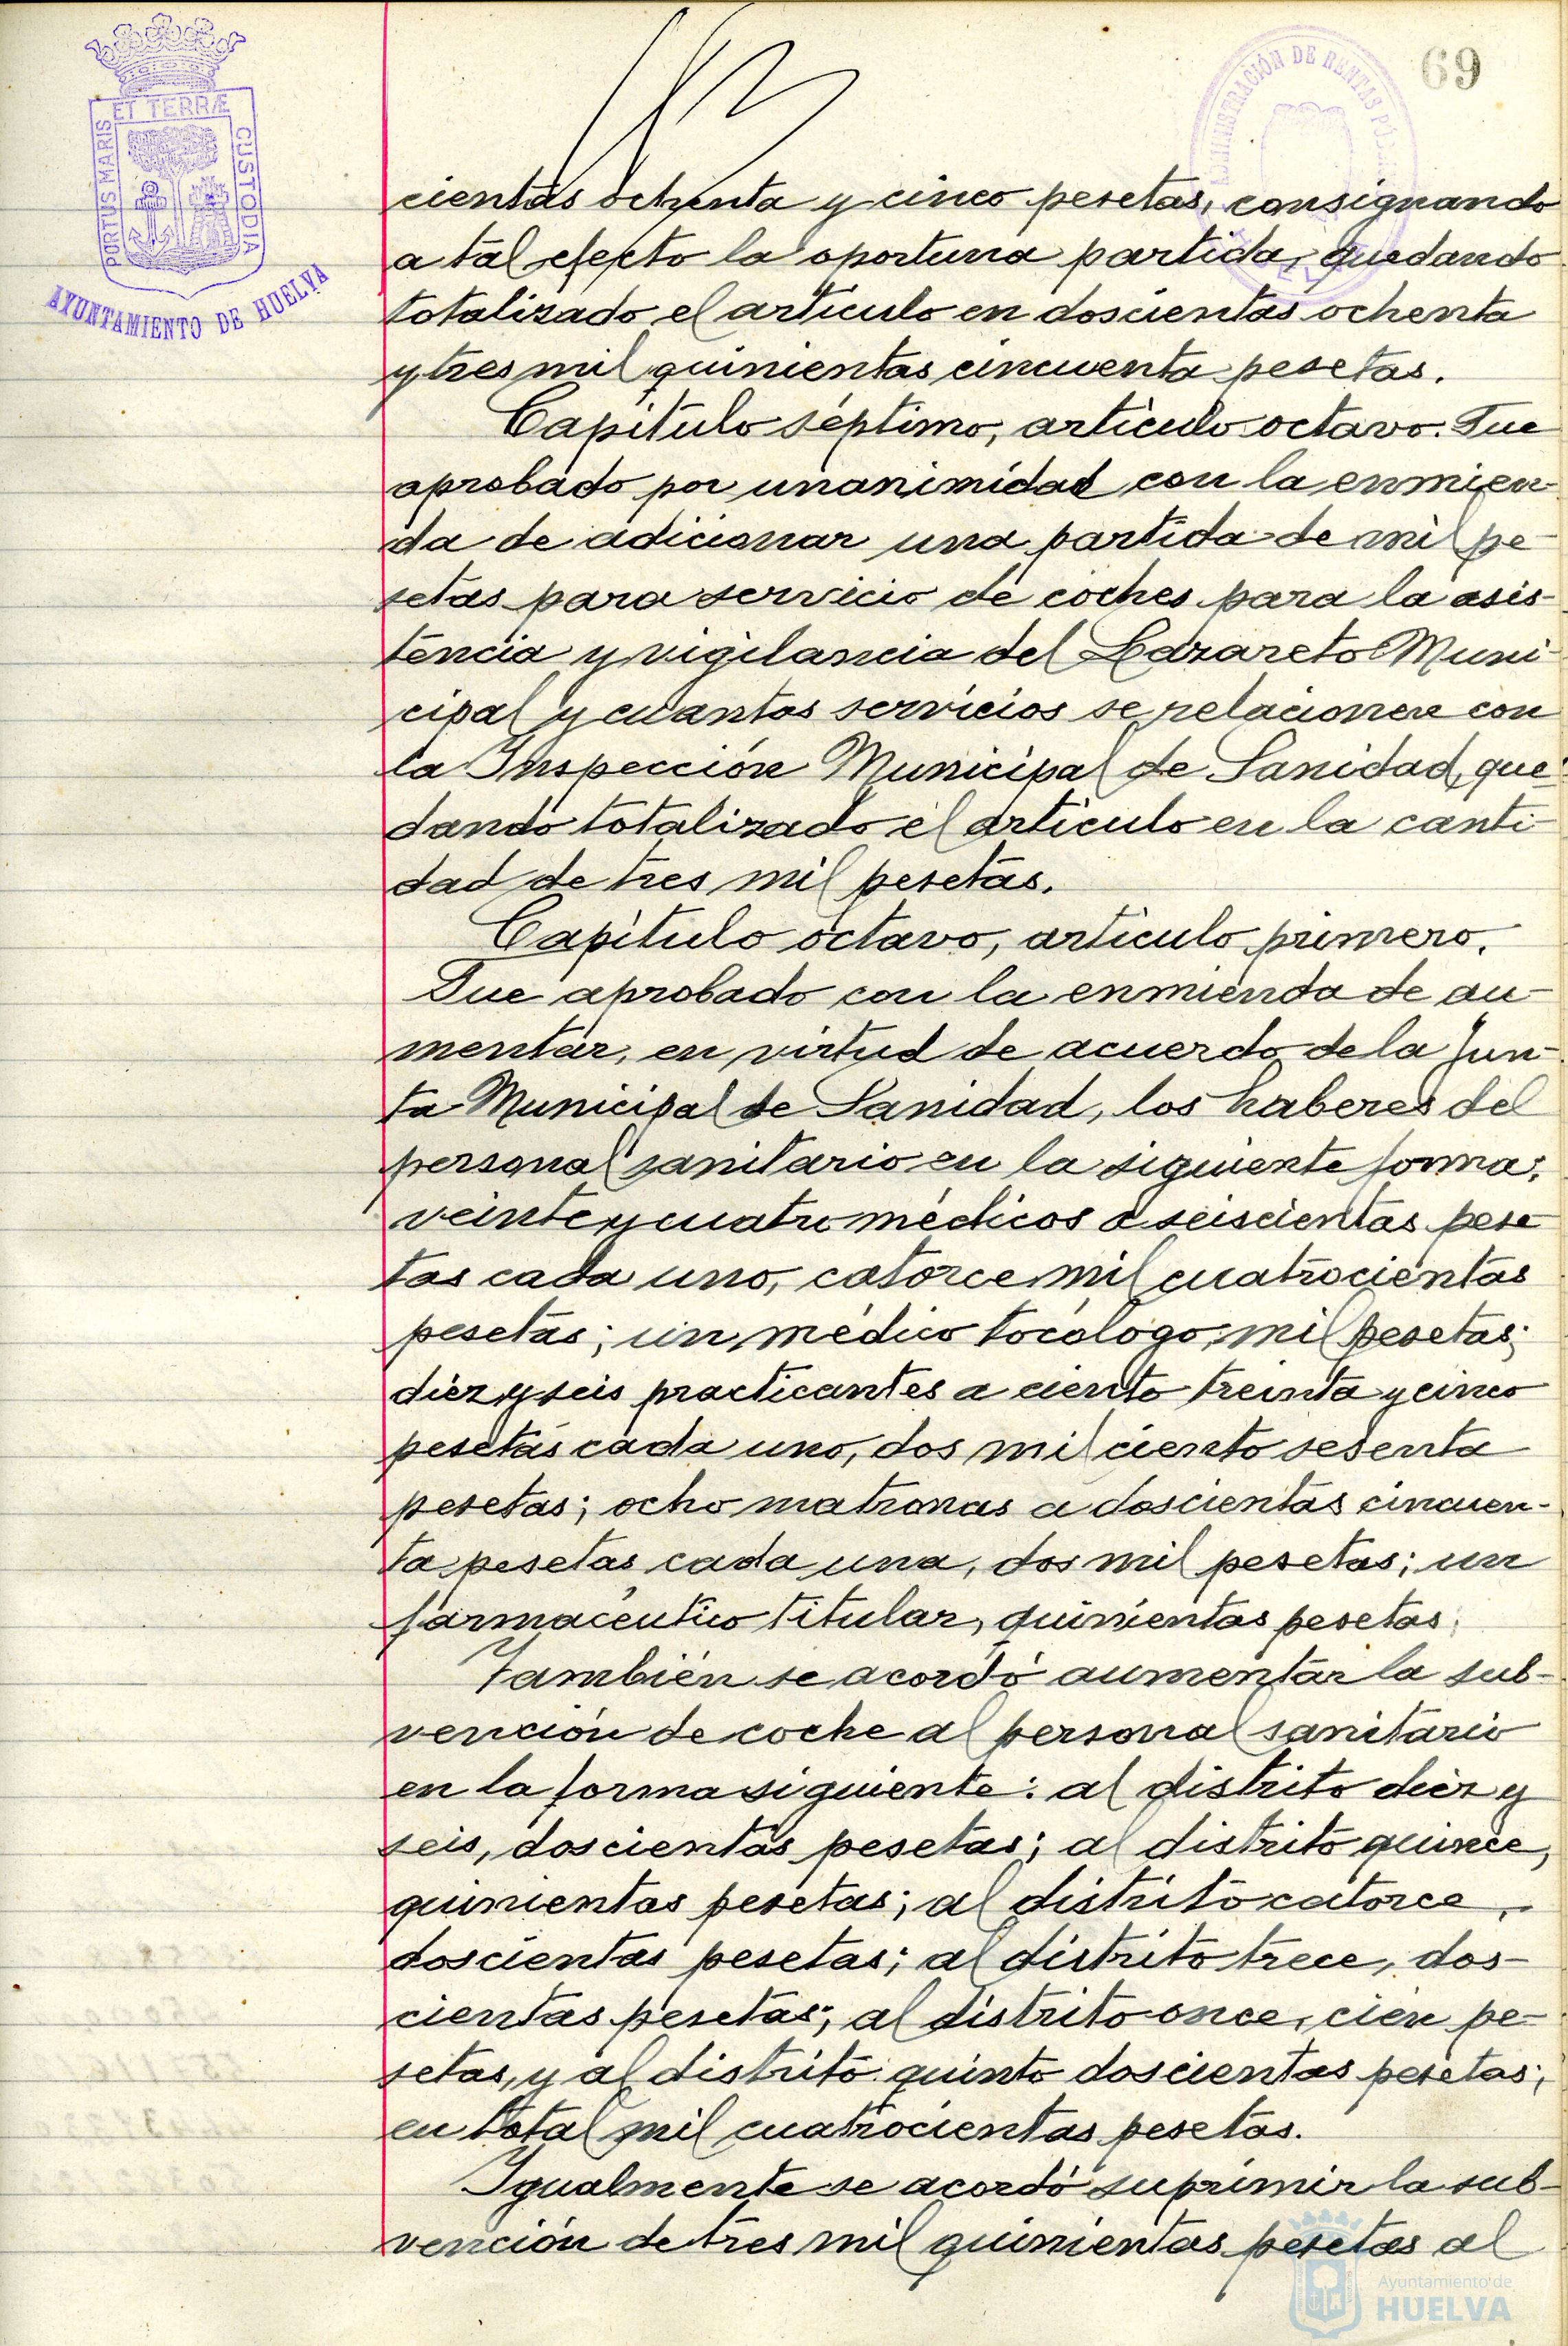 69
PORTUS MARIS ET TERRÆ CUSTODIA
AYUNTAMIENTO DE HUELVA
ADMINISTRACIÓN DE RENTAS
cientas ochenta y cinco pesetas, consignando
a tal efecto la oportuna partida, quedando
totalizado el artículo en doscientas ochenta
y tres mil quinientas cincuenta pesetas.
Capítulo séptimo, artículo octavo. Fue
aprobado por unanimidad con la enmien-
da de adicionar una partida de mil pe-
setas para servicio de coches para la asis-
tencia y vigilancia del Lazareto Muni-
cipal y cuantos servicios se relacionen con
la Inspección Municipal de Sanidad, que-
dando totalizado el artículo en la canti-
dad de tres mil pesetas.
Capítulo octavo, artículo primero.
Fue aprobado con la enmienda de au-
mentar, en virtud de acuerdo de la Jun-
ta Municipal de Sanidad, los haberes del
personal sanitario en la siguiente forma:
veinte y cuatro médicos a seiscientas pese-
tas cada uno, catorce mil cuatrocientas
pesetas; un médico tocólogo, mil pesetas;
diez y seis practicantes a ciento treinta y cinco
pesetas cada uno, dos mil ciento sesenta
pesetas; ocho matronas a doscientas cincuen-
ta pesetas cada una, dos mil pesetas; un
farmacéutico titular, quinientas pesetas.
También se acordó aumentar la sub-
vención de coche al personal sanitario
en la forma siguiente: al distrito diez y
seis, doscientas pesetas; al distrito quince,
quinientas pesetas; al distrito catorce,
doscientas pesetas; al distrito trece, dos-
cientas pesetas; al distrito once, cien pe-
setas, y al distrito quinto doscientas pesetas;
en total mil cuatrocientas pesetas.
Igualmente se acordó suprimir la sub-
vención de tres mil quinientas pesetas al
Ayuntamiento de
HUELVA